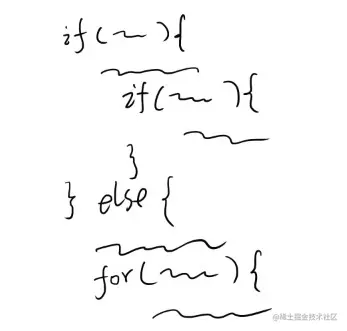 if(~){
if(~){
}
} else {
for(~){
@稀土掘金技术社区